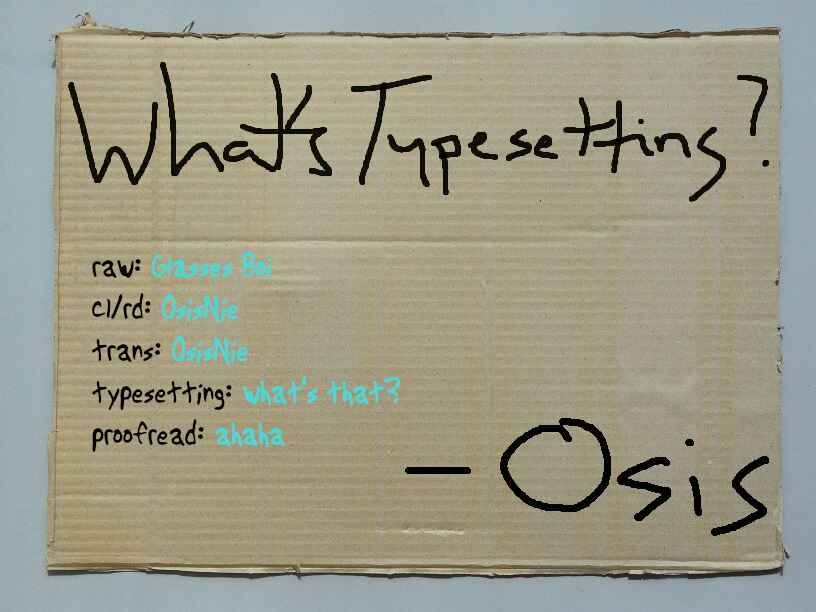 What's Typesetting?
raw: Glasses Boi
cl/rd: OsisNie
trans: OsisNie
typesetting: what's that?
proofread: ahaha
- Osis